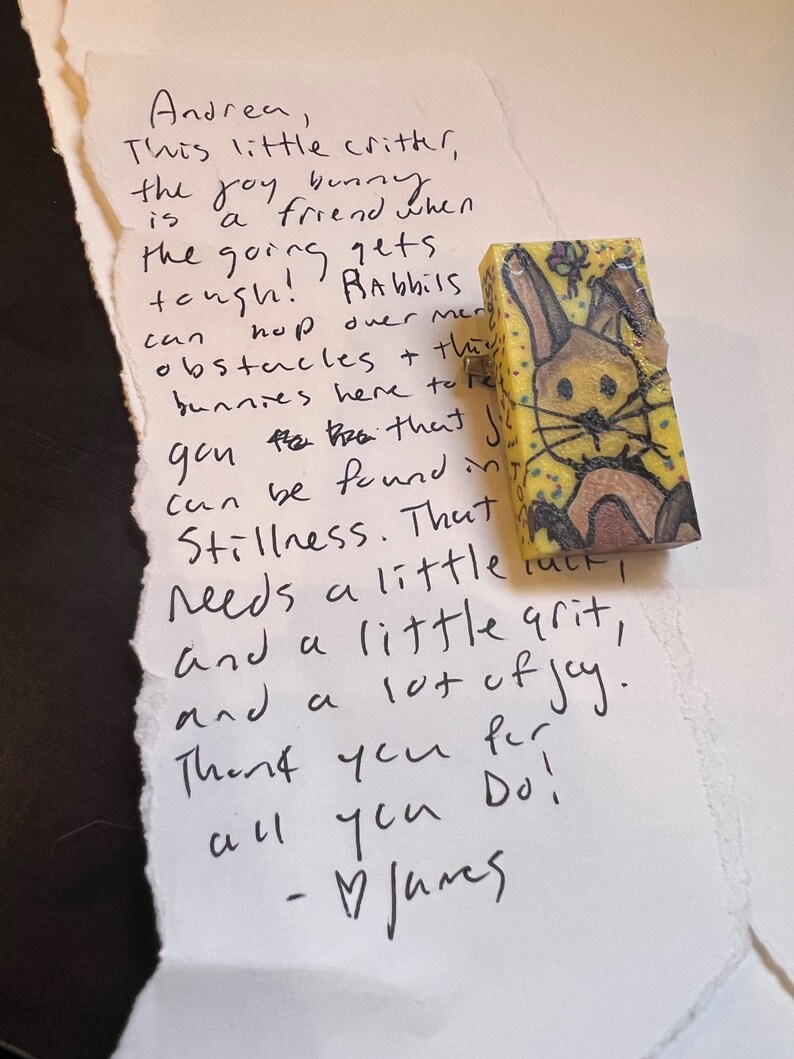 Andrea,
This little critter,
the joy bunny
is a friend when
the going gets
tough! RAbbits
can hop over
obstacles +
bunnies here to
you that
can be found in
Stillness. That
needs a little luck,
and a little grit,
and a lot of joy.
Thank you for
all you Do!
- ♡ James